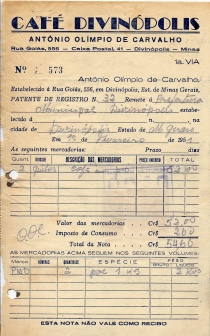 CAFÉ DIVINÓPOLIS
ANTÔNIO OLÍMPIO DE CARVALHO
Rua Goiás, 556 - Caixa Postal, 41 - Divinópolis - Minas
1a. VIA
Nº 573
Antônio Olímpio de Carvalho,
Estabelecido á Rua Goiás, 556, em Divinópolis, Est. de Minas Gerais,
PATENTE DE REGISTRO N. 32 Remete á Prefeitura
Municipal Divinópolis estabe-
lecido á na cidade
de Divinópolis Estado de M. Gerais
de Fevereiro de 1961
As seguintes mercadorias: Prazo dias
Quant. DESCRIÇÃO DAS MERCADORIAS PREÇO UNITÁRIO TOTAL
Valor das mercadorias Cr$ 52,00
Imposto de Consumo Cr$ 2,60
Total da Nota Cr$ 54,60
AS MERCADORIAS ACIMA SEGUEM NOS SEGUINTES VOLUMES:
MARCA QUANT. ESPÉCIE PESO
2
ESTA NOTA NÃO VALE COMO RECIBO